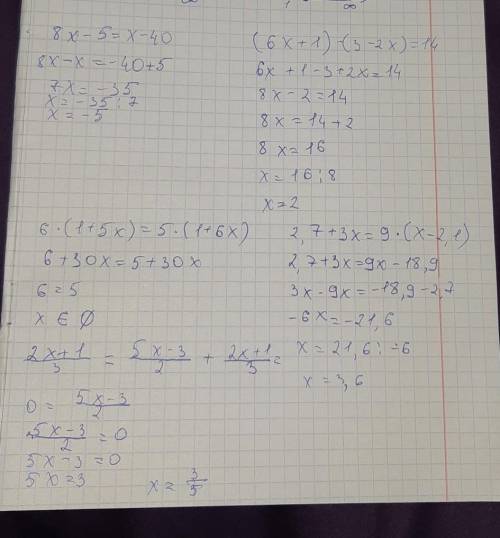 8x-5=x-40
8x-x=-40+5
7x=-35
x=-35:7
x=-5
(6x+1)-(3-2x)=14
6x+1-3+2x=14
8x-2=14
8x=14+2
8x=16
x=16:8
x=2
6·(1+5x)=5·(1+6x)
6+30x=5+30x
6=5
x∈∅
2,7+3x=9·(x-2,1)
2,7+3x=9x-18,9
3x-9x=-18,9-2,7
-6x=-21,6
x=21,6:-6
x=3,6
2x+1/3 = 5x-3/2 + 2x+1/3 =
0= 5x-3/2
5x-3/2 =0
5x-3=0
5x=3
x=3/5